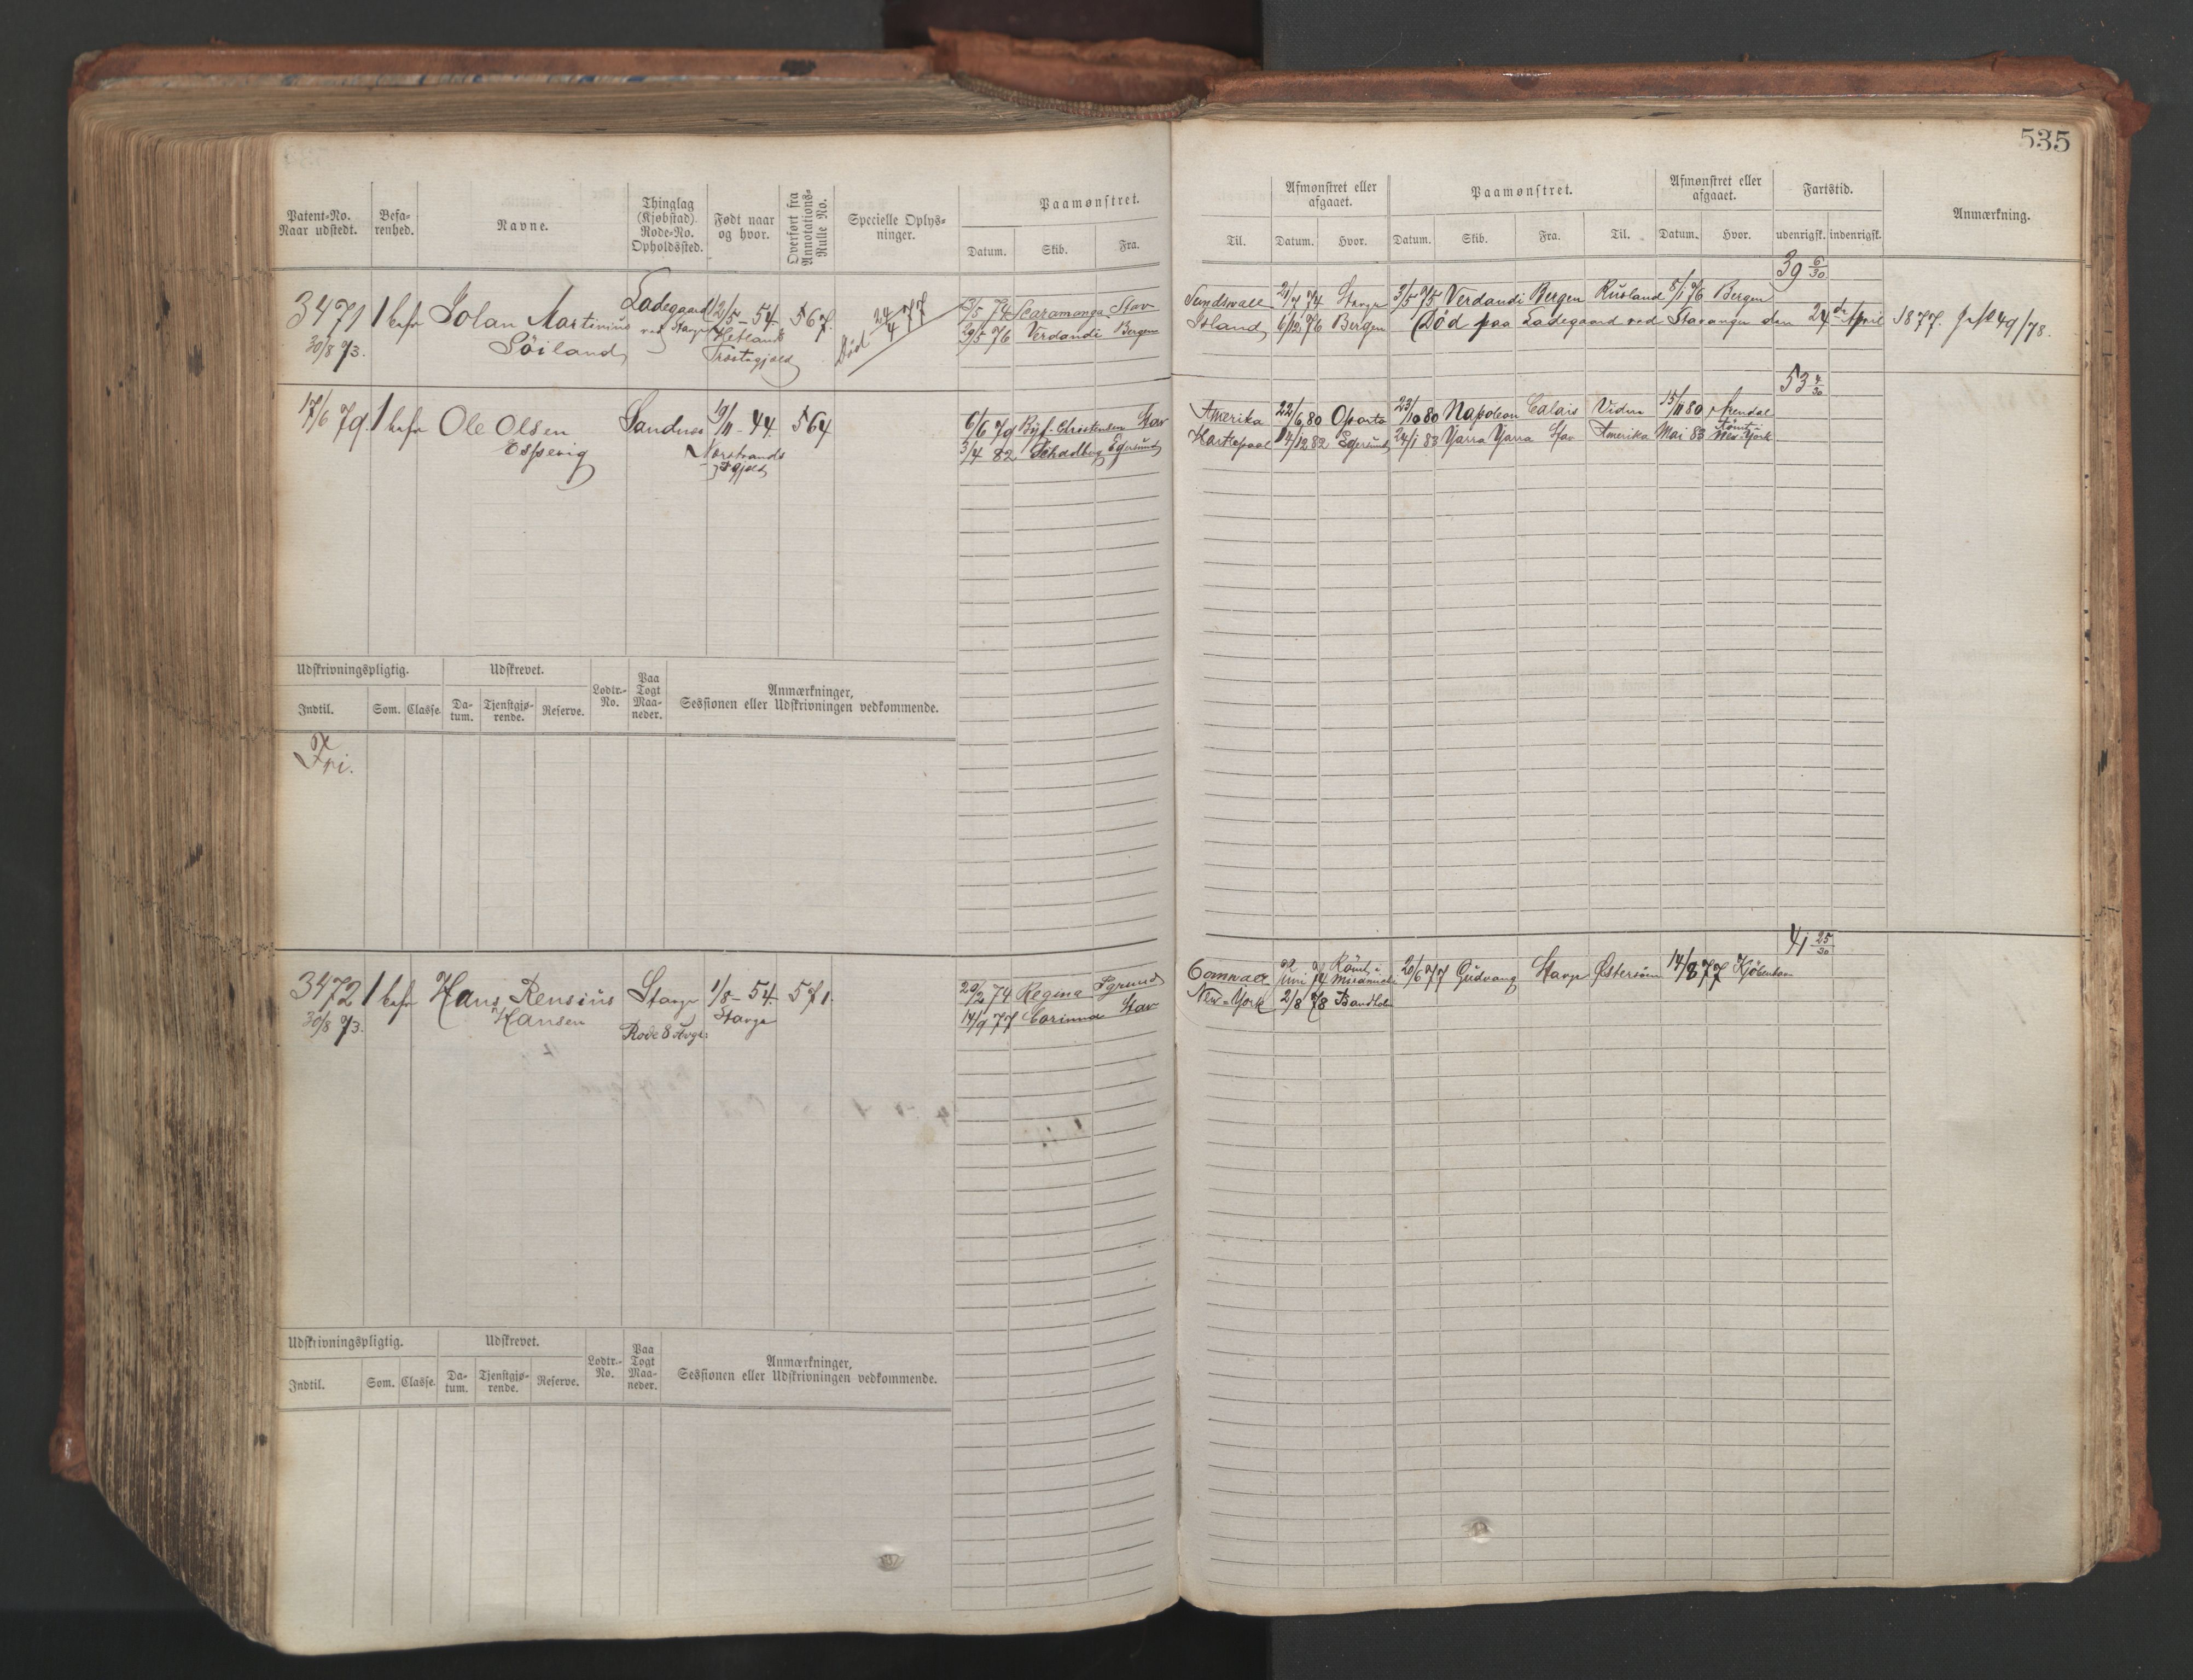 535
Patent-No. Naar udstedt.
Befa- renhed.
Navne.
Thinglag (Kjøbstad). Rode-No. Opholdssted.
Født naar og hvor.
Overført fra Annotations- Rulle No.
Specielle Oplys- ninger.
Paamønstret.
Datum. Skib. Fra.
Til.
Afmønstret eller afgaaet.
Datum. Hvor.
Paamønstret.
Datum. Skib. Fra. Til.
Afmønstret eller afgaaet.
Datum. Hvor.
Fartstid.
udenrigsk. indenrigsk.
Anmærkning.
39 6/30
3471 1 Martinius Ladegaard 12/5-54 567. Død 24/4 77 Scaramanga Stav Sundswall 21/7 74 Stavgr 3/5 75 Verdandi Bergen Rusland 8/1 76 Bergen
30/8 73. Söiland ved Stavgr Hetlands 29/5 76 Verdandi Bergen Island 6/12 76 Bergen Død paa Ladegaard ved Stavanger den 24de April 1877. 49/78.
53 4/30
17/6 79. 1 Ole Olsen Sandnes 19/11-44. 564 6/6 79 Christensen Stav Amerika 22/6 80 Oporto 23/10 80 Napoleon Calais 15/11 80 Arendal
Espevig Nerstrands 3/4 82 Egersund Hartlepool 14/12 82 Egersund 24/1 83 Yarra Yarra Stav Amerika Mai 83 Rømt i New-York
Udskrivningspligtig. Udskrevet. Lodtr.- No. Paa Togt Maa- neder. Anmærkninger, Sessionen eller Udskrivningen vedkommende.
Indtil. Som. Classe. Da- tum. Tjenstgjø- rende. Reserve.
Fri.
41 25/30
3472 1 Hans Rensius Stavgr 1/8-54. 571. 20/2 74 Regina Pgrund Juni 74 Rømt i Miramichi 20/6 77 Gudvang Stavgr Østersøen 14/8 77 Kjöbenhavn
30/8 73. Hansen Rode 8 Stavgr 14/9 77 Corinna Stav New-York 2/8 78 Bandholm
Udskrivningspligtig. Udskrevet. Lodtr.- No. Paa Togt Maa- neder. Anmærkninger, Sessionen eller Udskrivningen vedkommende.
Indtil. Som. Classe. Da- tum. Tjenstgjø- rende. Reserve.